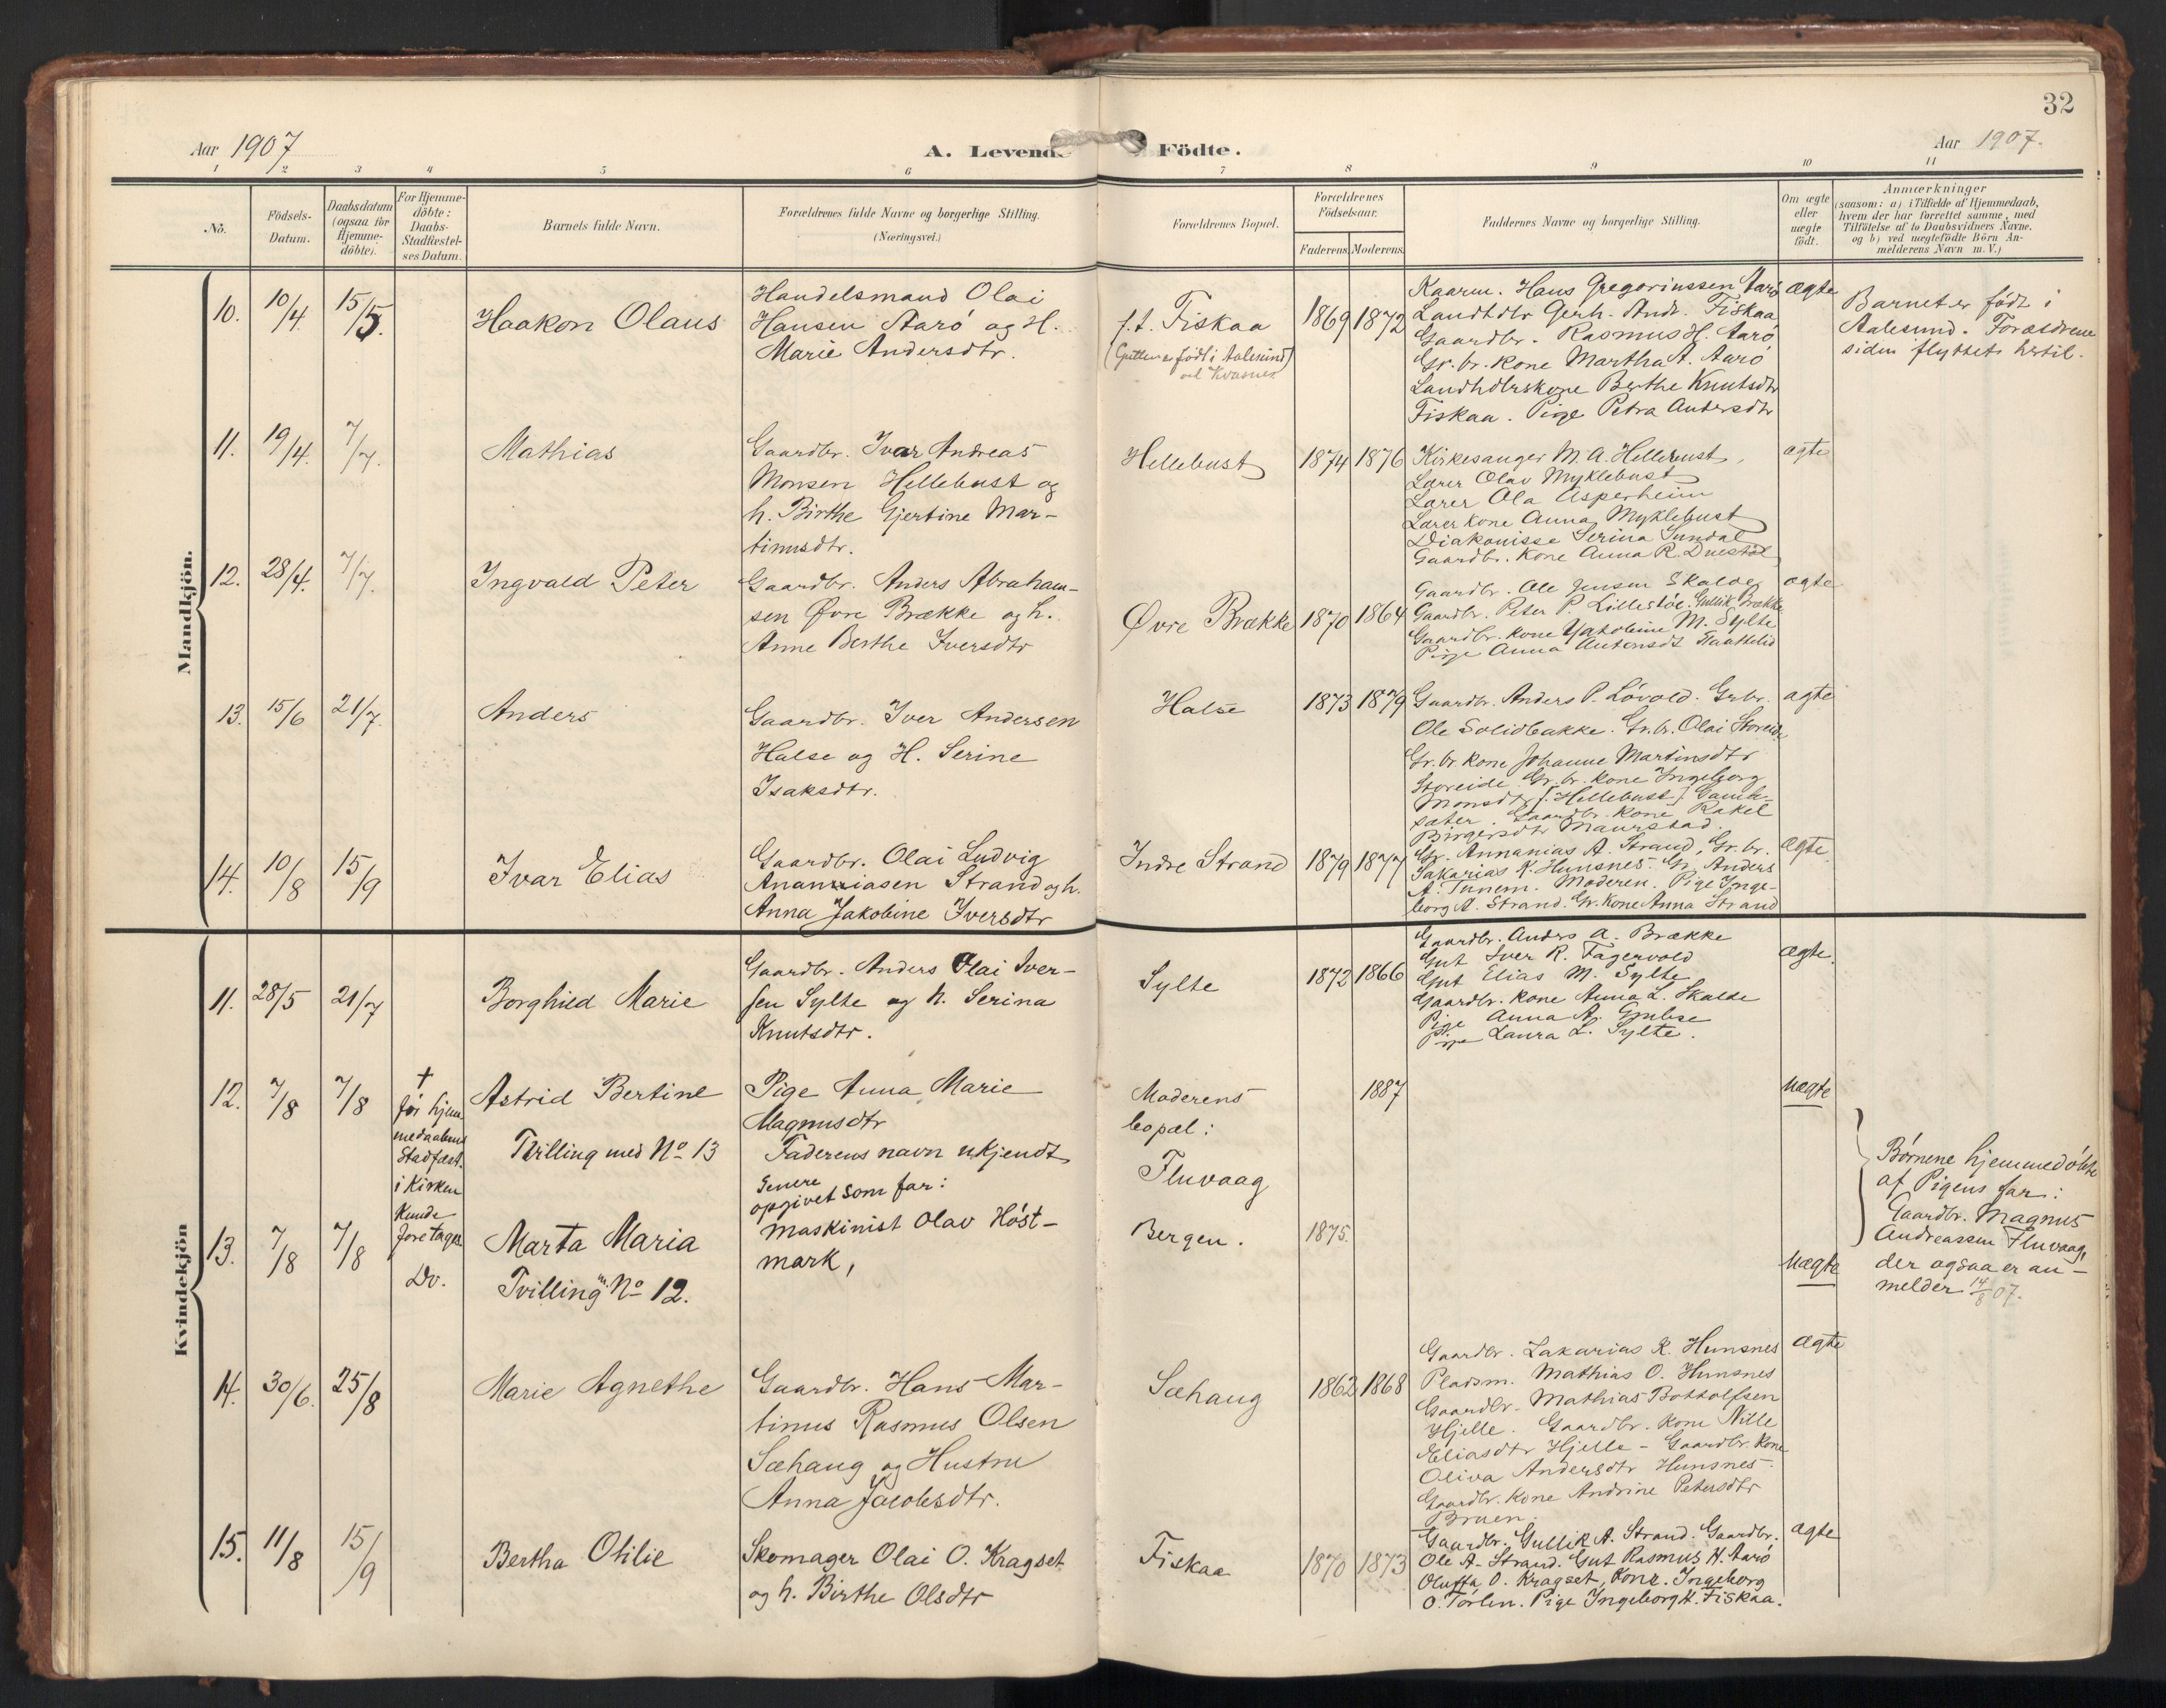 32
Aar 1907
A. Levende Födte.
Aar 1907.
1 2 3 4 5 6 7 8 9 10 11
No.
Födsels-
Datum.
Daabsdatum
(ogsaa for
Hjemme-
döbte).
For Hjemme-
döbte:
Daabs-
Stadfæstel-
ses Datum.
Barnets fulde Navn.
Forældrenes fulde Navne og borgerlige Stilling.
(Næringsvei.)
Forældrenes Bopæl.
Forældrenes
Födselsaar.
Faderens. Moderens.
Faddernes Navne og borgerlige Stilling.
Om ægte
eller
uægte
födt.
Anmærkninger
(saasom: a) i Tilfælde af Hjemmedaab,
hvem der har forrettet samme, med
Tilföielse af to Daabsvidners Navne,
og b) ved uægtefödte Börn An-
melderens Navn m. V.)
Mandkjön.
10. 10/4 15/5. Haakon Olaus
Handelsmand Olai
Hansen Aarö og H.
Marie Andersdtr.
f.t. Fiskaa
(Gutten er født i Aalesund)
1869 1872
Kaarm. Hans Gregoriussen Aarö
Landhdlr Gerh. Andr. Fiskaa
Gaardbr. Rasmus H. Aarö
Gr.br. Kone Martha A. Aarö
Landhdlrskone Berthe Knutsdtr
Fiskaa. Pige Petra Andersdtr
ægte
Barnet er født i
Aalesund. Forældrene
siden flyttet hertil.
11. 19/4. 7/7. Mathias
Gaardbr. Ivar Andreas
Monsen Hellebust og
h. Birthe Gjertine Mar-
tinusdtr.
Hellebust
1874 1876
Kirkesanger M. A. Hellebust,
Lærer Olav Myklebust
Lærer Ola Asperheim
Lærer kone Anna Myklebust
Diakonisse Serina Sundal
Gaardbr. Kone Anna R. Duestöl
ægte
12. 28/4. 7/7. Ingvald Peter
Gaardbr. Anders Abraham-
sen Øvre Brække og h.
Anne Berthe Iversdtr
Øvre Brække
1870 1864
Gaardbr. Ole Jensen Skalde
Gaardbr. Peter P. Lillestöl. Gullik Brække
Gaardbr. Kone Jakobine M. Sylte
Pige Anna Antonsdt
ægte
13. 15/6 21/7. Anders
Gaardbr. Iver Andersen
Halse og H. Serine
Isaksdtr.
Halse
1873 1879
Gaardbr. Anders P. Lövold. Grbr.
Ole Solidbakke. Gr.br. Olai Storeide
Gr.br. Kone Johanne Martinsdtr
Storeide. Gr.br. Kone Ingeborg
Monsdtr [Hellebust] Gamle-
sæter. Gaardbr. Kone Rakel
Birgersdtr Maurstad.
ægte
14. 10/8 15/9 Ivar Elias
Gaardbr. Olai Ludvig
Ananiasen Strand og h.
Anna Jakobine Iversdtr
Indre Strand
1879 1877
Gr. Annanias A. Strand, Gr.br.
Sakarias K. Hunsnes. Gr. Anders
A. Tunem. Moderen. Pige Inge-
borg A. Strand. Gr. Kone Anna Strand
ægte
Kvindekjön
11. 28/5 21/7 Borghild Marie
Gaardbr. Anders Olai Iver-
sen Sylte og h. Serina
Knutsdtr.
Sylte
1872 1866
Gaardbr. Anders A. Brække
Gut Iver R. Fagervold
Gut Elias M. Sylte
Gaardbr. Kone Anna L. Skalde
Pige Anna A. Gjubse
Pige Laura L. Sylte.
ægte.
12. 7/8 7/8
†
før hjem
medaabens
Stadfæst.
i Kirken
kunde
foretages.
Astrid Bertine
Tvilling med No 13
Pige Anna Marie
Magnusdtr
Faderens navn ukjendt
Senere
opgivet som far:
maskinist Olav Höst-
mark,
Moderens
bopæl:
Fluvaag
1887
uægte
Børnene hjemmedöbte
af Pigens far:
Gaardbr. Magnus
Andreassen Fluvaag,
der ogsaa er an-
melder 14/8 07.
13. 7/8 7/8 Do.
Marta Maria
Tvilling m. No 12.
Bergen.
1875.
uægte
14. 30/6. 25/8 Marie Agnethe
Gaardbr. Hans Mar-
tinus Rasmus Olsen
Sæhaug og Hustru
Anna Jacobsdtr.
Sæhaug
1862 1868
Gaardbr. Zakarias K. Hunsnes
Pladsm. Mathias O. Hunsnes
Gaardbr. Mathias Bottolfsen
Hjelle. Gaardbr. Kone Nille
Eliasdtr Hjelle - Gaardbr. Kone
Oliva Andersdtr Hunsnes.
Gaardbr. Kone Andrine Petersdtr
Bruen.
ægte
15. 11/8 15/9 Bertha Otilie
Skomager Olai O. Kragset
og h. Birthe Olsdtr
Fiskaa
1870 1873
Gaardbr. Gullik A. Strand. Gaardbr.
Ole A. Strand. Gut Rasmus H. Aarö
Oluffa O. Kragset, Kone Ingeborg
O. Törlen. Pige Ingeborg H. Fiskaa.
ægte